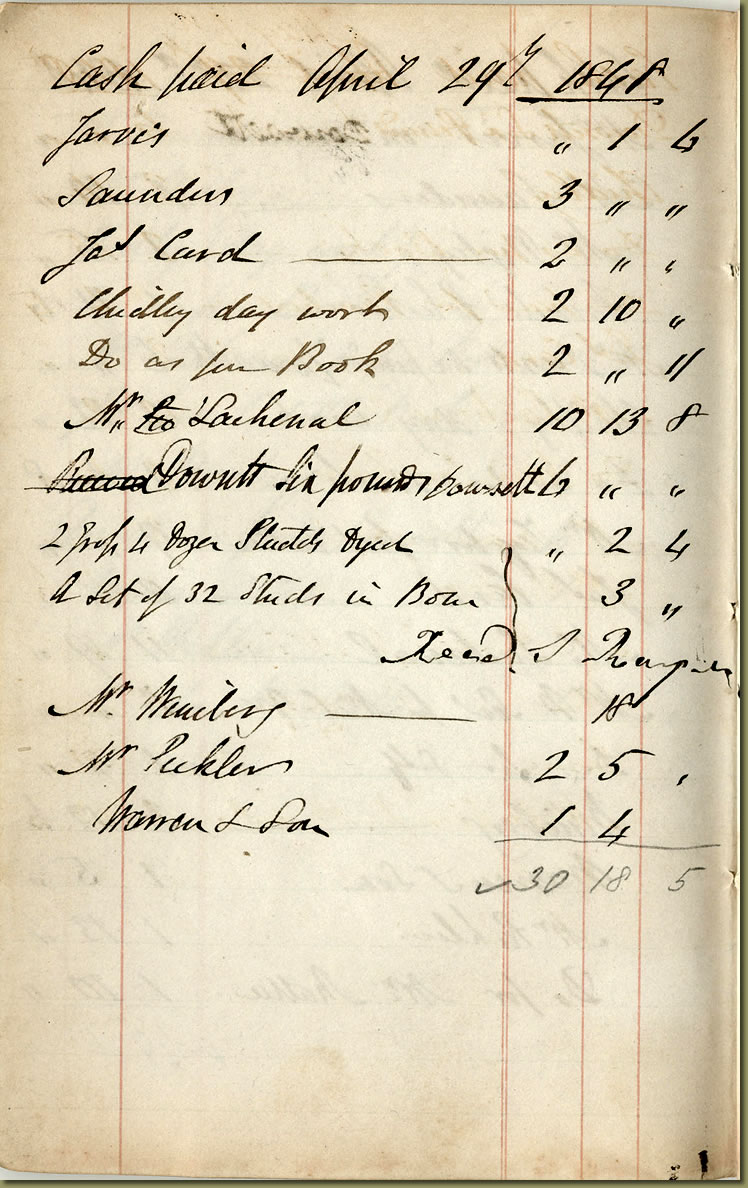 Cash paid April 29th 1848
Jarvis " 1 6
Saunders 3 " "
Jas Card 2 " "
Chidley day work 2 10 "
Do as per Book 2 " 11
Mr Lachenal 10 13 8
Dowsett Six pounds Dowsett 6 " "
2 Gross 4 Dozen Studds Dyed " 2 4
A Set of 32 Studs in Bone 3 "
Recd S
Mr 18
Mr Pickler 2 5 "
Warren & Son 1 4
30 18 5